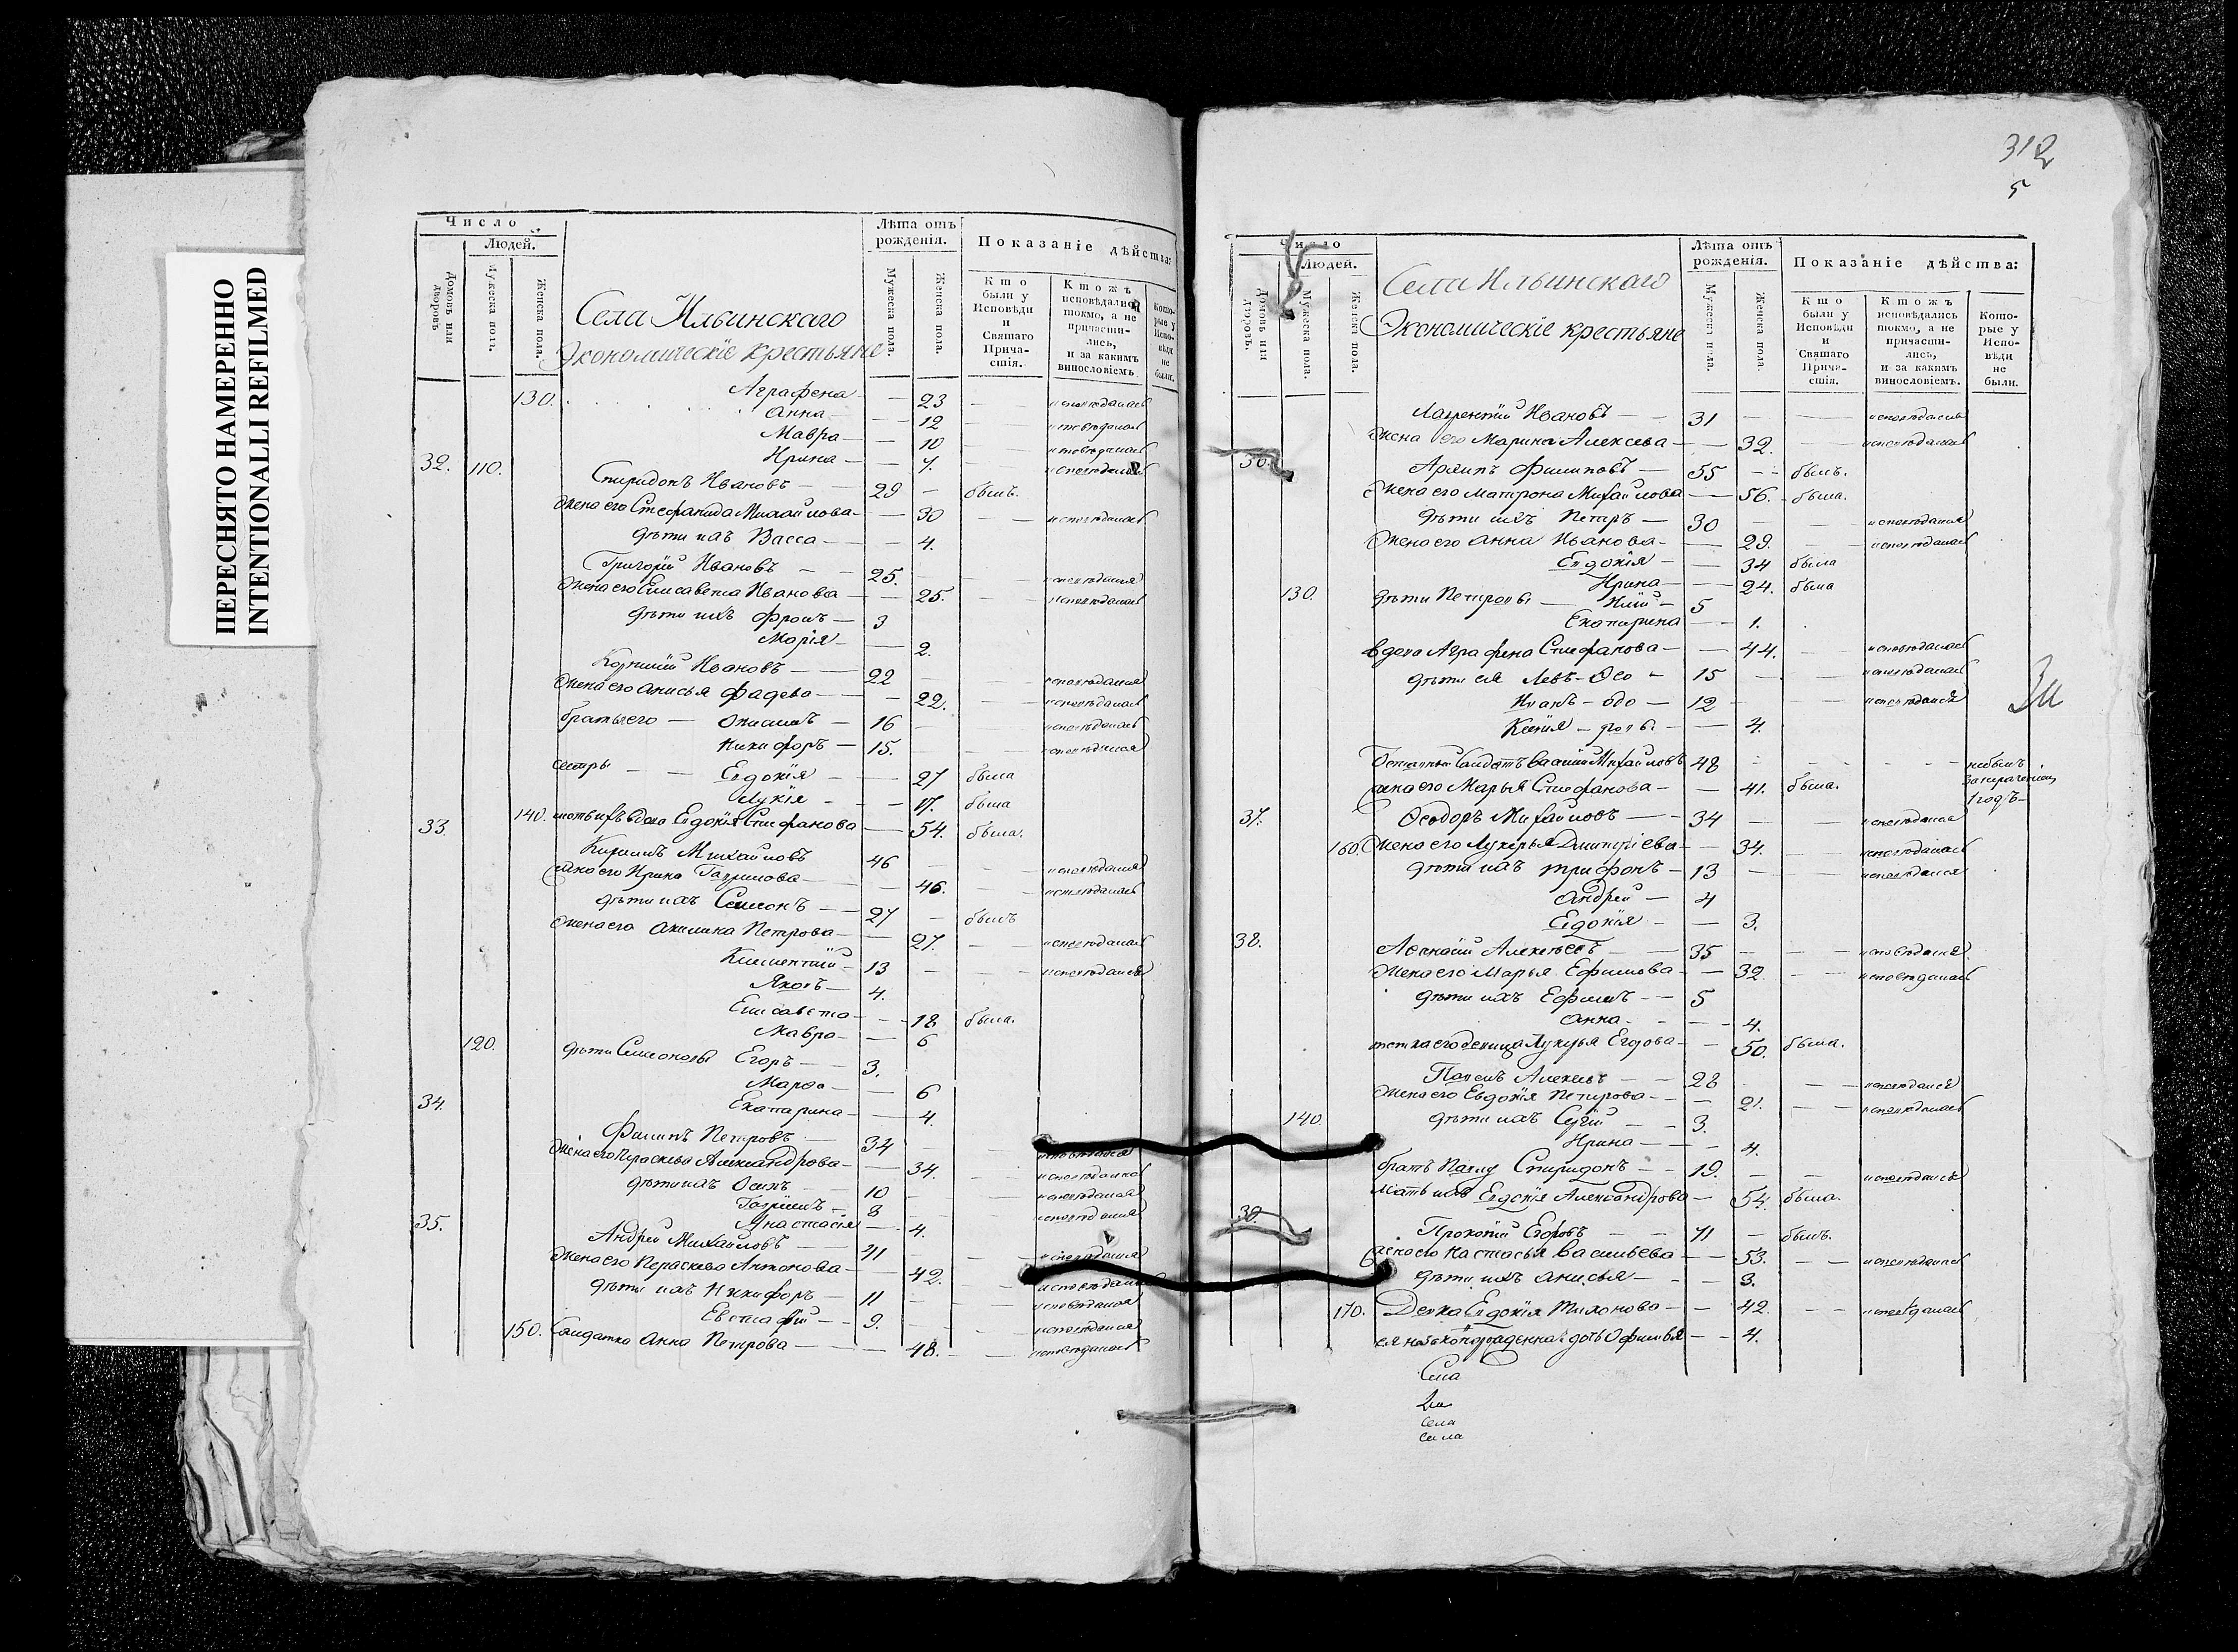 ПЕРЕСНЯТО НАМЕРЕННО
INTENTIONALLI REFILMED
Число
Людей.
Домовъ или дворовъ
Мужеска пола.
Женска пола.
Села Ильинскаго
Экономическіе крестьяне
Лѣта отъ рожденія.
Мужеска пола.
Женска пола.
Показаніе дѣйства:
Кто были у Исповѣди и Святаго Причастія.
Ктожъ исповѣдались токмо, а не причастились, и за какимъ винословіемъ
Которые у Исповѣди не были.
130. Аграфена — 23 — исповѣдалась
Анна — 12 — исповѣдалась
Мавра — 10 — исповѣдалась
Ирина — 7. — исповѣдалась
32. 110. Спиридонъ Ивановъ — 29 — былъ.
Жена его Стефанида Михайлова — 30 — исповѣдалась
дѣти ихъ Васса — 4.
Григорій Ивановъ — 25. исповѣдался
Жена его Елисавета Иванова — 25. исповѣдалась
дѣти ихъ Фролъ — 3
Марія — 2.
Корнилій Ивановъ — 22 исповѣдался
Жена его Анисья Фадева — 22. исповѣдалась
братья его — — 16 — исповѣдался
Никифоръ — 15. исповѣдался
сестры — Евдокія — 27 была
Лукія — 17. была
140. мать ихъ вдова Евдокія Стефанова — 54. была.
33. Кирилъ Михайловъ 46 исповѣдался
жена его Ирина Гаврилова — 46. исповѣдалась
дѣти ихъ Симеонъ — 27 — былъ
Жена его Акилина Петрова — 27. исповѣдалась
Климентій — 13 — исповѣдался
Яковъ — 4.
Елисавета — 18 была.
Мавра — 6
120. дѣти Симеоновы Егоръ — 3.
Марфа — 6
Екатарина — 4.
34. Филипъ Петровъ — 34 исповѣдался
Жена его Параскева Александрова — 34. исповѣдалась
дѣти ихъ Осипъ — 10 исповѣдался
Гаврилъ — 8 исповѣдался
Анастасія — 4.
35. Андрей Михайловъ — 41 исповѣдался
Жена его Параскева Антонова — 42. исповѣдалась
дѣти ихъ Никифоръ — 11 исповѣдался
Евстафій — 9. исповѣдался
150. Солдатка Анна Петрова — 48. исповѣдалась
312
5
Число
Людей.
Домовъ или дворовъ.
Мужеска пола.
Женска пола.
Села Ильинскаго
Экономическіе крестьяне
Лѣта отъ рожденія.
Мужеска пола.
Женска пола.
Показаніе дѣйства:
Кто были у Исповѣди и Святаго Причастія.
Ктожъ исповѣдались токмо, а не причастились, и за какимъ винословіемъ.
Которые у Исповѣди не были.
Лаврентій Ивановъ — 31 исповѣдался
Жена его Марина Алексева — 32. исповѣдалась
36. Архипъ Филиповъ — 55 — былъ.
Жена его Матрона Михайлова — 56. была.
дѣти ихъ Петръ — 30 исповѣдался
Жена его Анна Иванова — 29. исповѣдалась
Евдокія — 34 была
Ирина — 24. была
130. дѣти Петровы — Илій — 5
Екатарина — 1.
вдова Аграфена Стефанова — 44. исповѣдалась
дѣти ея Левъ — 15 исповѣдался
Иванъ — 12 исповѣдался
Ксенія — 4.
Солдатъ Василій Михайловъ 48 — небылъ
1 годъ
жена его Марья Стефанова — 41. была.
37. Ѳеодоръ Михайловъ — 34 исповѣдался
160. Жена его Лукерья Димитріева — 34. исповѣдалась
дѣти ихъ Трифонъ — 13 исповѣдался
Андрей — 4
Евдокія — 3.
38. Алексѣевъ — 35 исповѣдался
Жена его Марья Ефимова — 32. исповѣдалась
дѣти ихъ Ефимъ — 5
Анна — 4.
тетка его девица Лукерья — 50. была.
Павелъ Алексевъ — 28 исповѣдался
Жена его Евдокія Петрова — 21. исповѣдалась
140. дѣти ихъ Сергій — 3.
Ирина — 4.
братъ Павлу Спиридонъ — 19. исповѣдался
Мать ихъ Евдокія Александрова — 54. была.
39. Прокопій Егоровъ — 71 — былъ.
жена его Настасья Васильева — 53. исповѣдалась
дѣти ихъ Анисья — 3.
170. Девка Евдокія Тихонова — 42. исповѣдалась
ея дочь Офимья — 4.
За
Села
села
села